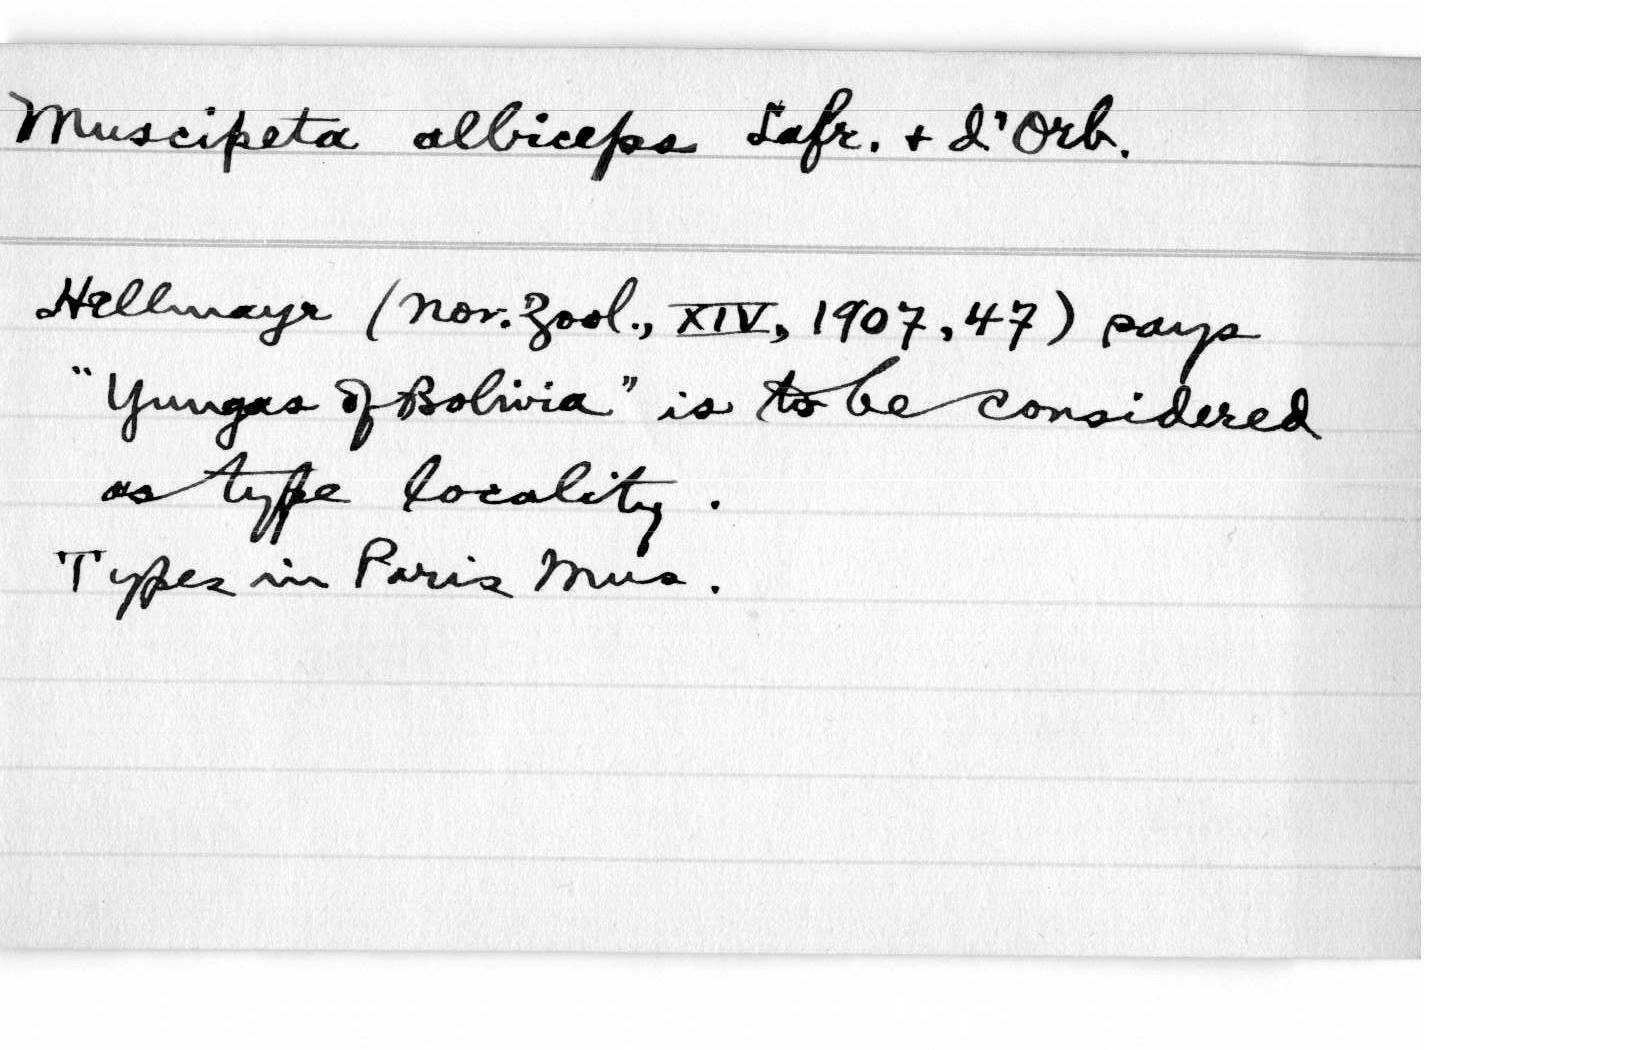 Muscipeta albiceps Lafr. + d'Orb.
Hellmayr (Nov. Zool., XIV, 1907, 47) says
"Yungas of Bolivia" is to be considered
as type locality.
Types in Paris Mus.